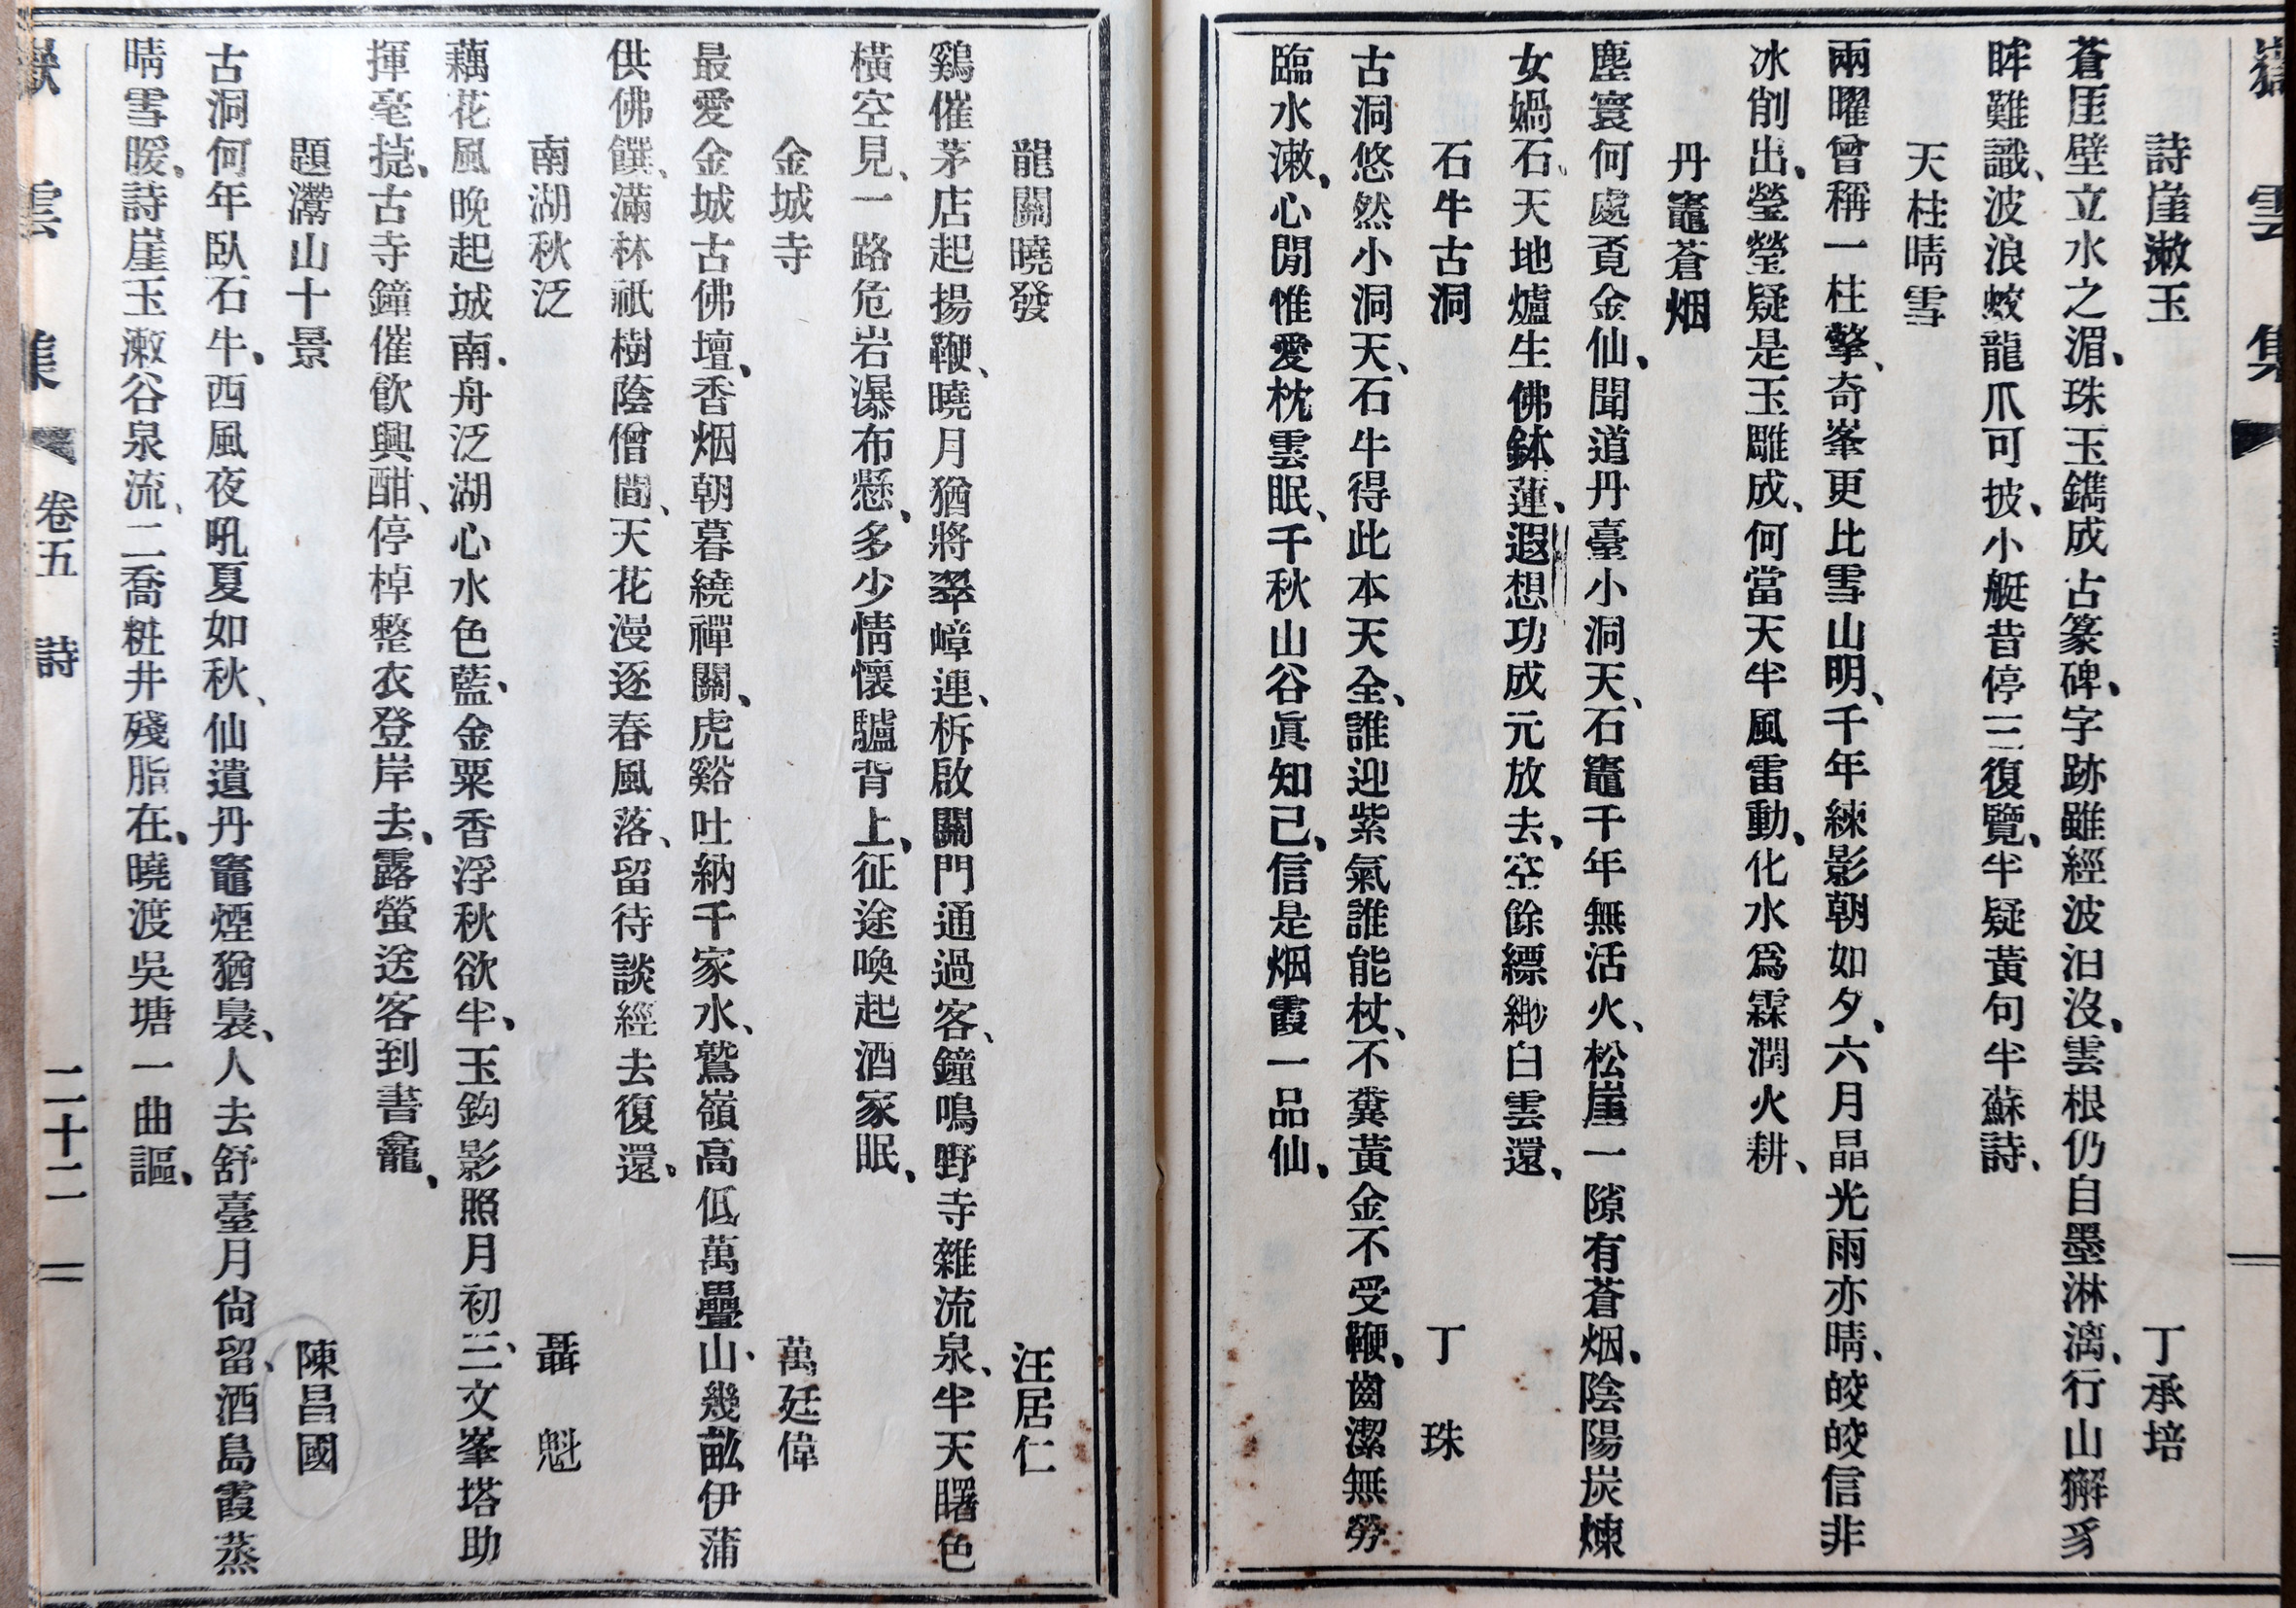 詩崖漱玉　丁承培
蒼厓壁立水之湄、珠玉鐫成古篆碑、字跡雖經波汩沒、雲根仍自墨淋漓、行山獬豸
眸難識、波浪蛟龍爪可披、小艇昔停三復覽、半疑黃句半蘇詩、
天柱晴雪
兩曜曾稱一柱擎、奇峯更比雪山明、千年練影朝如夕、六月晶光雨亦晴、皎皎信非
冰削出、瑩瑩疑是玉雕成、何當天半風雷動、化水爲霖潤火耕、
丹竈蒼烟
塵寰何處覓金仙、聞道丹臺小洞天、石竈千年無活火、松崖一隙有蒼烟、陰陽炭煉
女媧石、天地爐生佛鉢蓮、遐想功成元放去、空餘縹緲白雲還、
石牛古洞　丁珠
古洞悠然小洞天、石牛得此本天全、誰迎紫氣誰能杖、不糞黃金不受鞭、齒潔無勞
臨水漱、心閒惟愛枕雲眠、千秋山谷眞知己、信是烟霞一品仙、
龍關曉發　汪居仁
鷄催茅店起揚鞭、曉月猶將翠嶂連、柝啟關門通過客、鐘鳴野寺雜流泉、半天曙色
橫空見、一路危岩瀑布懸、多少情懷驢背上、征途喚起酒家眠、
金城寺　萬廷偉
最愛金城古佛壇、香烟朝暮繞禪關、虎谿吐納千家水、鷲嶺高低萬疊山、幾畝伊蒲
供佛饌、滿林祇樹蔭僧間、天花漫逐春風落、留待談經去復還、
南湖秋泛　聶魁
藕花風晚起城南、舟泛湖心水色藍、金粟香浮秋欲半、玉鈎影照月初三、文峯塔助
揮毫㨗、古寺鐘催飲興酣、停棹整衣登岸去、露螢送客到書龕、
題灊山十景　陳昌國
古洞何年臥石牛、西風夜吼夏如秋、仙遺丹竈煙猶裊、人去舒臺月尙留、酒島霞蒸
晴雪暖、詩崖玉漱谷泉流、二喬粧井殘脂在、曉渡吳塘一曲謳、
嶽雲集　卷五　詩　二十二